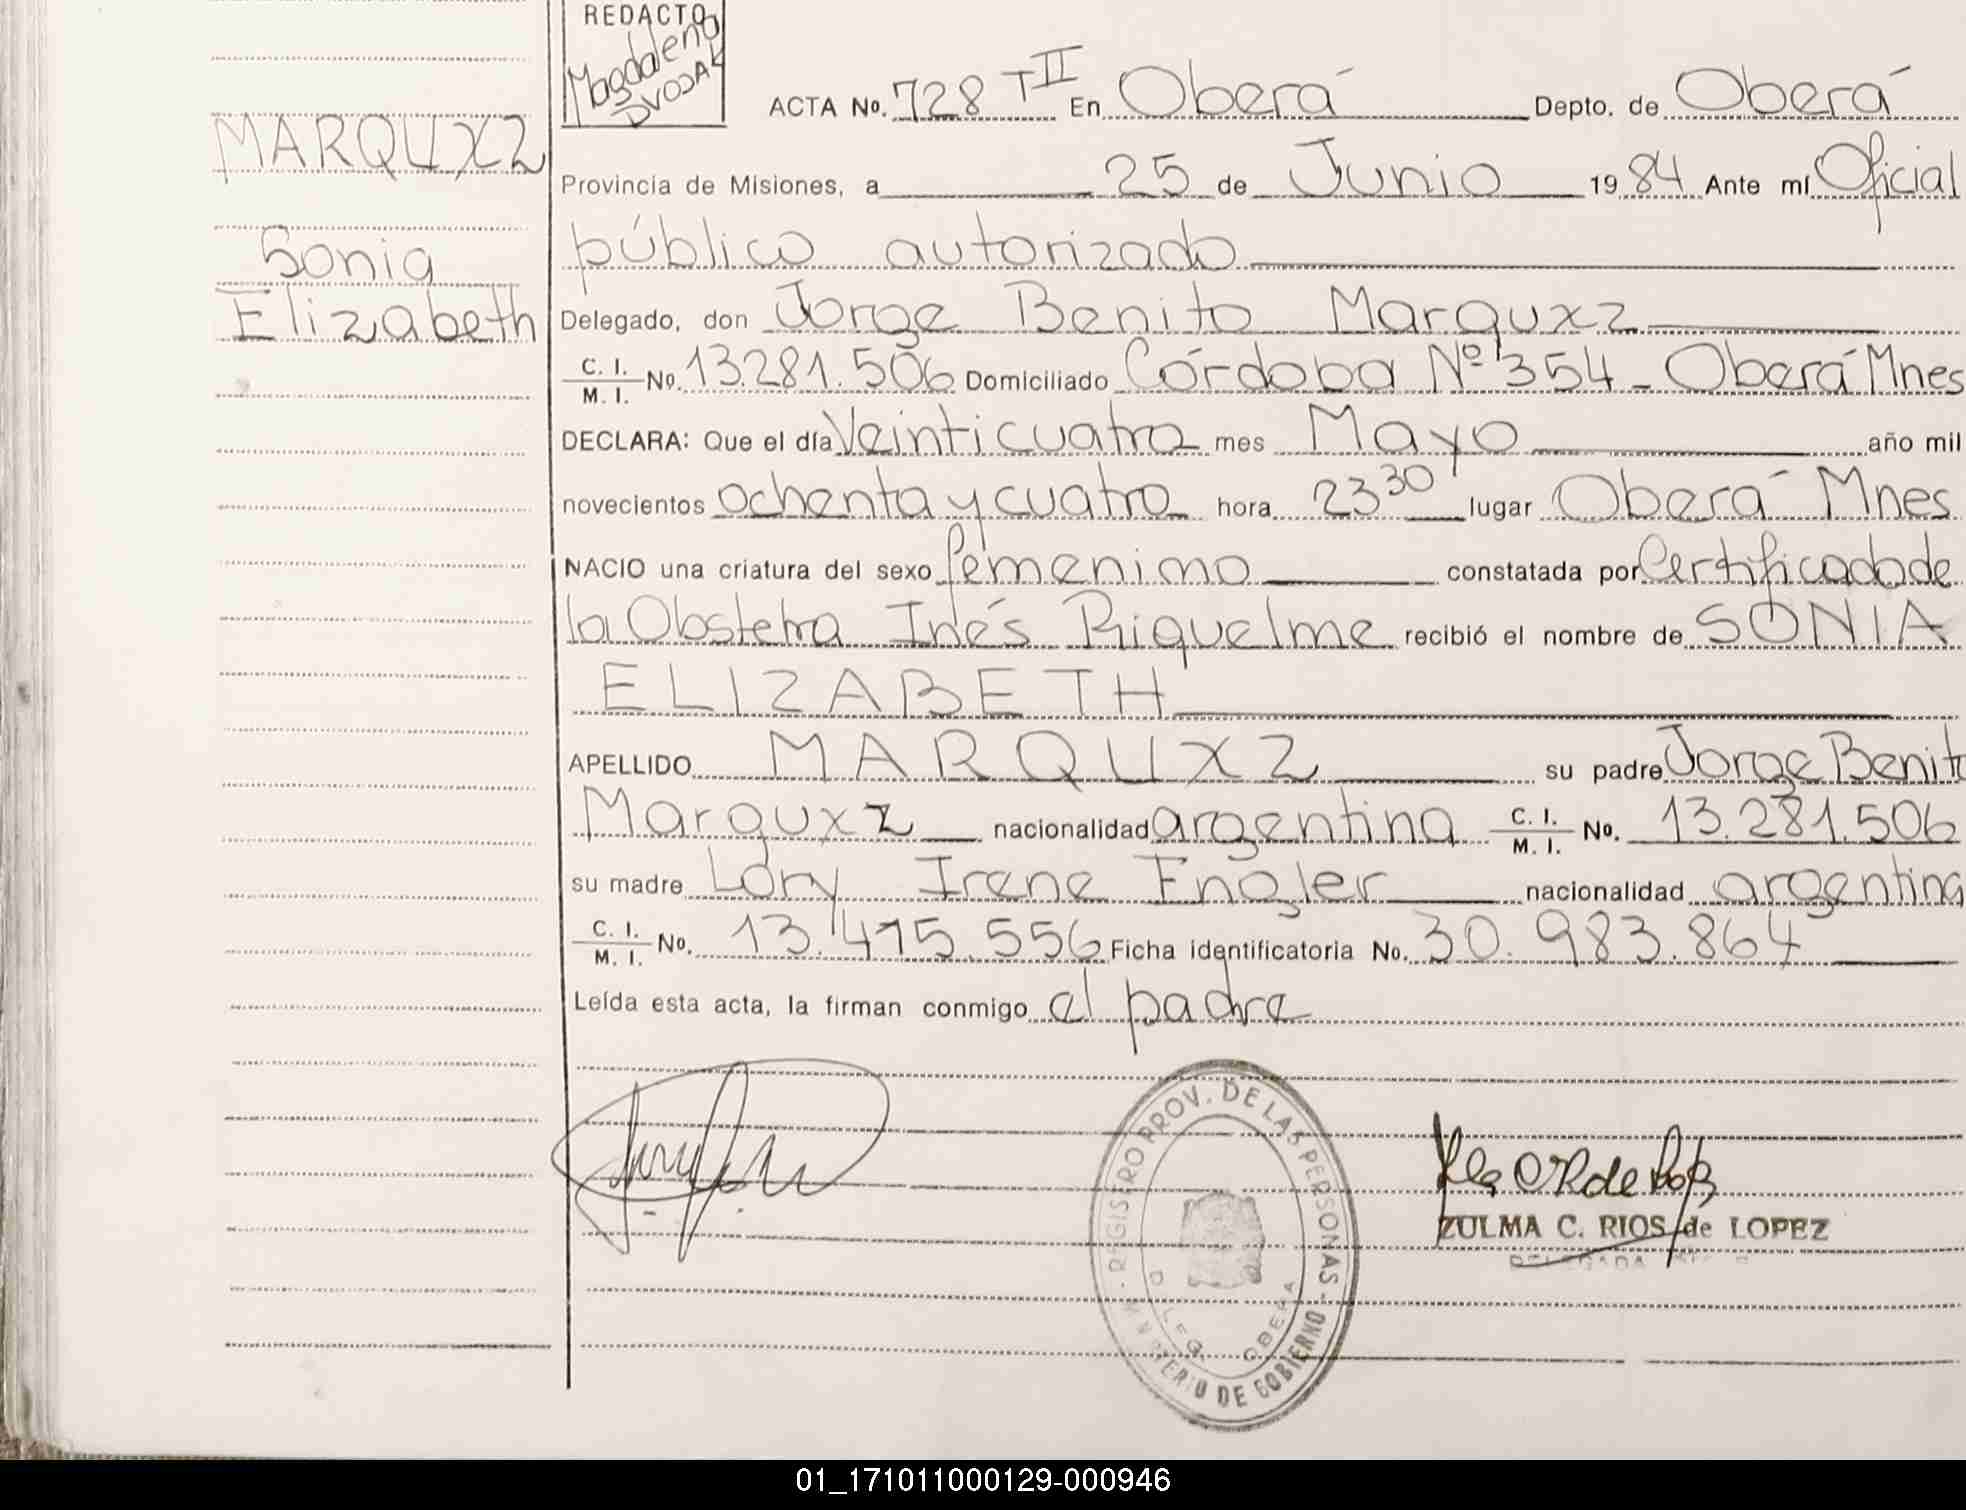 REDACTO
Magdalena
DVOJAK
ACTA No. 728 TII En Oberá Depto. de Oberá
MARQUXZ
Provincia de Misiones, a 25 de Junio 1984 Ante mí Oficial
público autorizado
Sonia
Elizabeth
Delegado, don Jorge Benito Marquxz
C. I. / M. I. No. 13.281.506 Domiciliado Córdoba Nº 354 - Oberá Mnes
DECLARA: Que el día Veinticuatro mes Mayo año mil
novecientos ochenta y cuatro hora 23 30 lugar Oberá Mnes
NACIO una criatura del sexo femenino constatada por Certificado de
la Obstetra Inés Riquelme recibió el nombre de SONIA
ELIZABETH
APELLIDO MARQUXZ su padre Jorge Benito
Marquxz nacionalidad argentina C. I. / M. I. No. 13.281.506
su madre Lory Irene Engler nacionalidad argentina
C. I. / M. I. No. 13.415.556 Ficha identificatoria No. 30.983.864
Leída esta acta, la firman conmigo el padre
REGISTRO PROV. DE LAS PERSONAS - MINISTERIO DE GOBIERNO
DELEG. OBERA
ZULMA C. RIOS de LOPEZ
DELEGADA
01_171011000129-000946